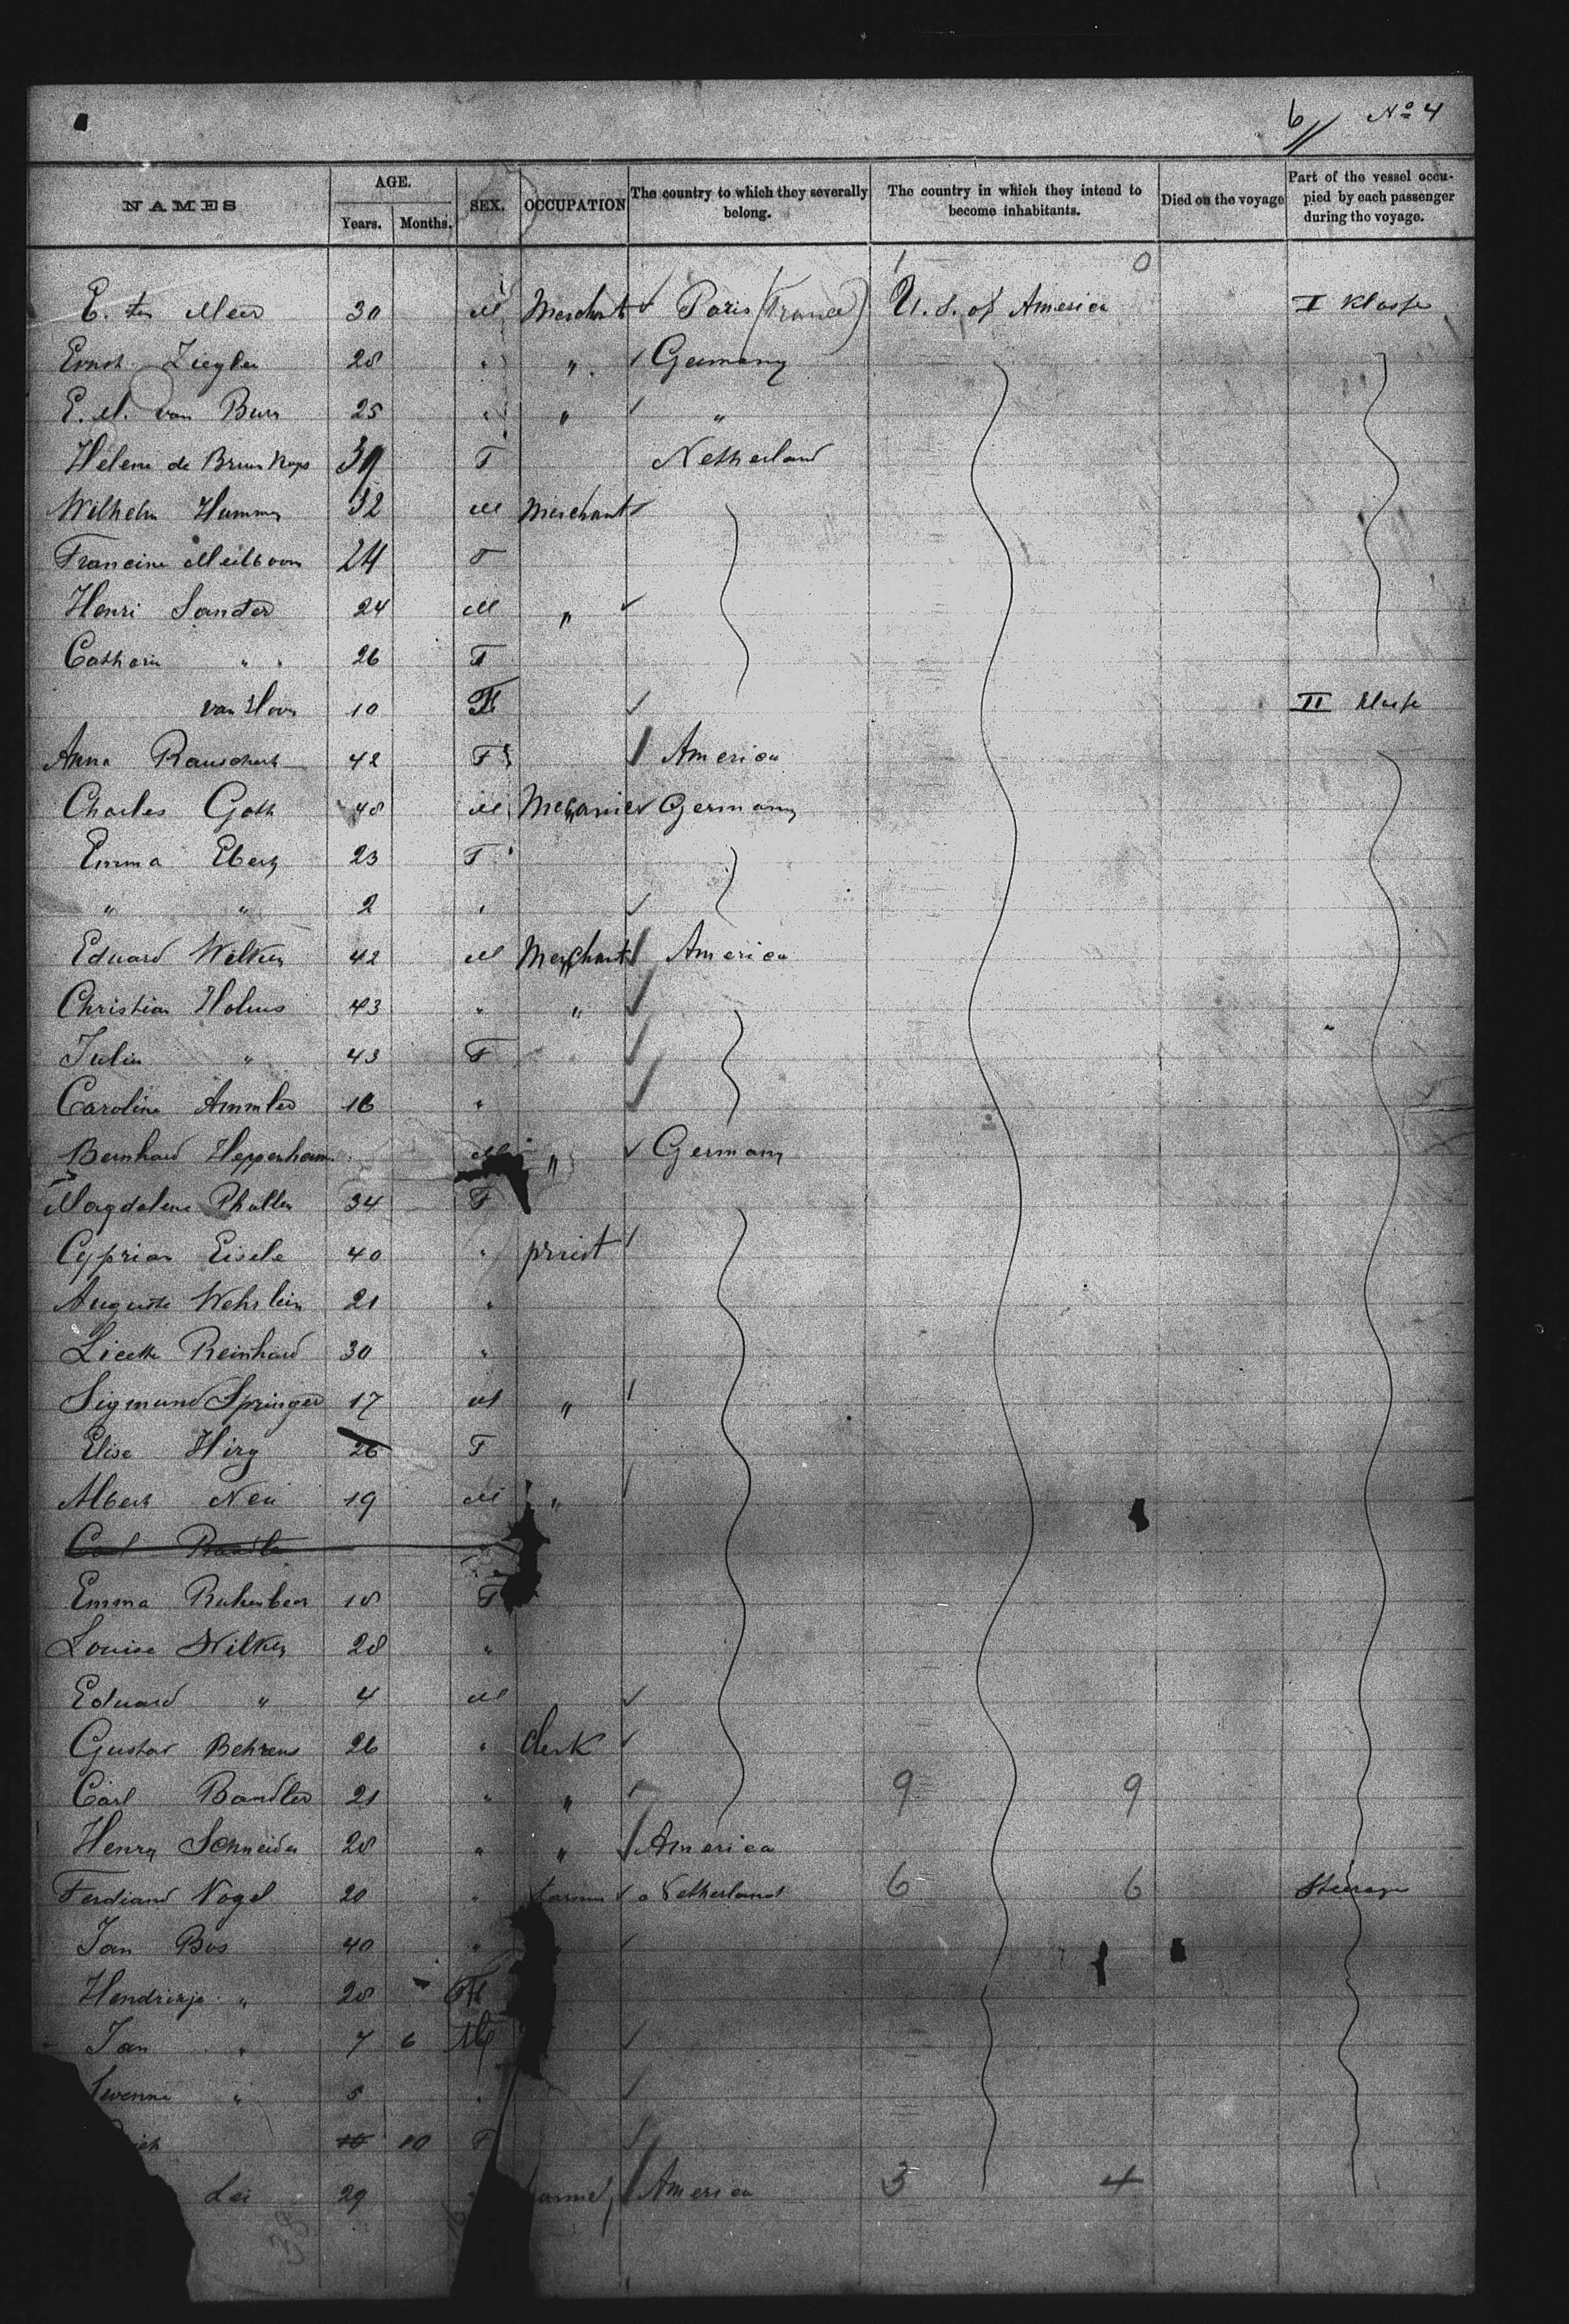 6 // No 4
NAMES AGE. Years. Months. SEX. OCCUPATION The country to which they severally belong. The country in which they intend to become inhabitants. Died on the voyage Part of the vessel occupied by each passenger during the voyage.
1 0
E. ter Meer 30 M Merchant Paris (France) U. S. of America I Klasse
Ernst Ziegler 28 " " Germany
E. M. van Buren 25 " " "
Helene de Bruin Kops 39 F Netherland
Wilhelm Hummer 32 M Merchant
Francine Meilboom 24 F
Henri Sander 24 M "
Catharin " 26 F
van Hoorn 10 II Klasse
Anna Rauschert 42 F America
Charles Goth 48 M Mechanic Germany
Emma Ebert 23 F
" " 2 "
Eduard Wilken 42 M Merchant America
Christian Holms 43 " "
Julia " 43 F
Caroline Ammler 16 "
Bernhard Heppenheim M " Germany
Magdalene 34 F
Cyprian Eisele 40 " priest
Auguste Wehrlein 21 "
Licette Reinhard 30 "
Sigmund Springer 17 M "
Elise Hirz 26 F
Albert Neu 19 M "
Carl
Emma 18 F
Louise Wilken 28 "
Eduard " 4 M
Gustav Behrens 26 " Clerk
Carl Bandler 21 " " 9 9
Henry Schneider 28 " " America
Ferdiand Vogel 20 " farmer Netherland 6 6 Steerage
Jan Bos 40 "
Hendrikje " 28 F
Jan " 7 6 M
" 5 "
10 10 F
Lei 29 America 3 4
38